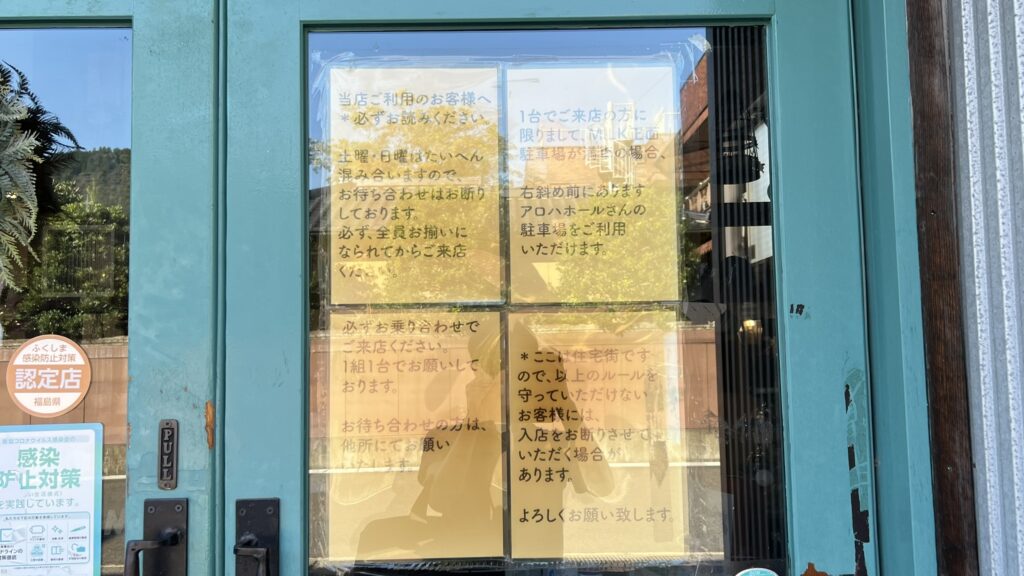 当店ご利用のお客様へ
＊必ずお読みください。
土曜・日曜はたいへん
混み合いますので、
お待ち合わせはお断り
しております。
必ず、全員お揃いに
なられてからご来店
ください。
1台でご来店の方に
限りまして、MILK正面
駐車場が満台の場合、
右斜め前にあります
アロハホールさんの
駐車場をご利用
いただけます。
必ずお乗り合わせで
ご来店ください。
1組1台でお願いして
おります。
お待ち合わせの方は、
他所にてお願い
いたします。
＊ここは住宅街です
ので、以上のルールを
守っていただけない
お客様には、
入店をお断りさせて
いただく場合が
あります。
よろしくお願い致します。
ふくしま
感染防止対策
認定店
福島県
PULL
新型コロナウイルス感染症の
感染
防止対策
を実践しています。